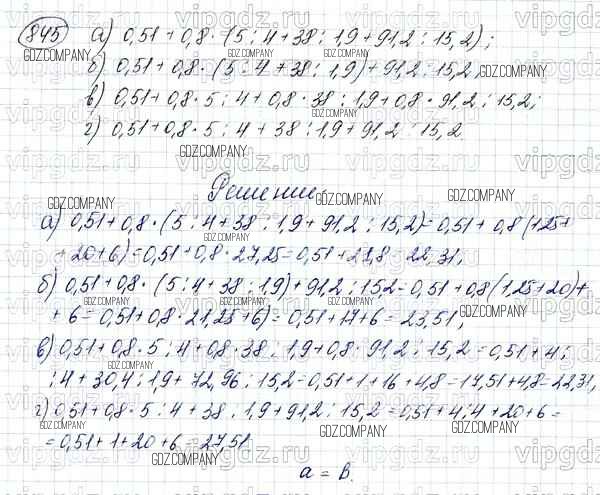 845 а) 0,51 + 0,8 · (5 : 4 + 38 : 1,9 + 91,2 : 15,2);
б) 0,51 + 0,8 · (5 : 4 + 38 : 1,9) + 91,2 : 15,2;
в) 0,51 + 0,8 · 5 : 4 + 0,8 · 38 : 1,9 + 0,8 · 91,2 : 15,2;
г) 0,51 + 0,8 · 5 : 4 + 38 : 1,9 + 91,2 : 15,2
Решение.
а) 0,51 + 0,8 · (5 : 4 + 38 : 1,9 + 91,2 : 15,2) = 0,51 + 0,8 (1,25 +
+ 20 + 6) = 0,51 + 0,8 · 27,25 = 0,51 + 21,8 = 22,31;
б) 0,51 + 0,8 · (5 : 4 + 38 : 1,9) + 91,2 : 15,2 = 0,51 + 0,8 (1,25 + 20) +
+ 6 = 0,51 + 0,8 · 21,25 + 6) = 0,51 + 17 + 6 = 23,51;
в) 0,51 + 0,8 · 5 : 4 + 0,8 · 38 : 1,9 + 0,8 · 91,2 : 15,2 = 0,51 + 4 :
: 4 + 30,4 : 1,9 + 72,96 : 15,2 = 0,51 + 1 + 16 + 4,8 = 17,51 + 4,8 = 22,31,
г) 0,51 + 0,8 · 5 : 4 + 38 : 1,9 + 91,2 : 15,2 = 0,51 + 4 : 4 + 20 + 6 =
= 0,51 + 1 + 20 + 6 = 27,51
а = в.
GDZ.COMPANY
vipgdz.ru